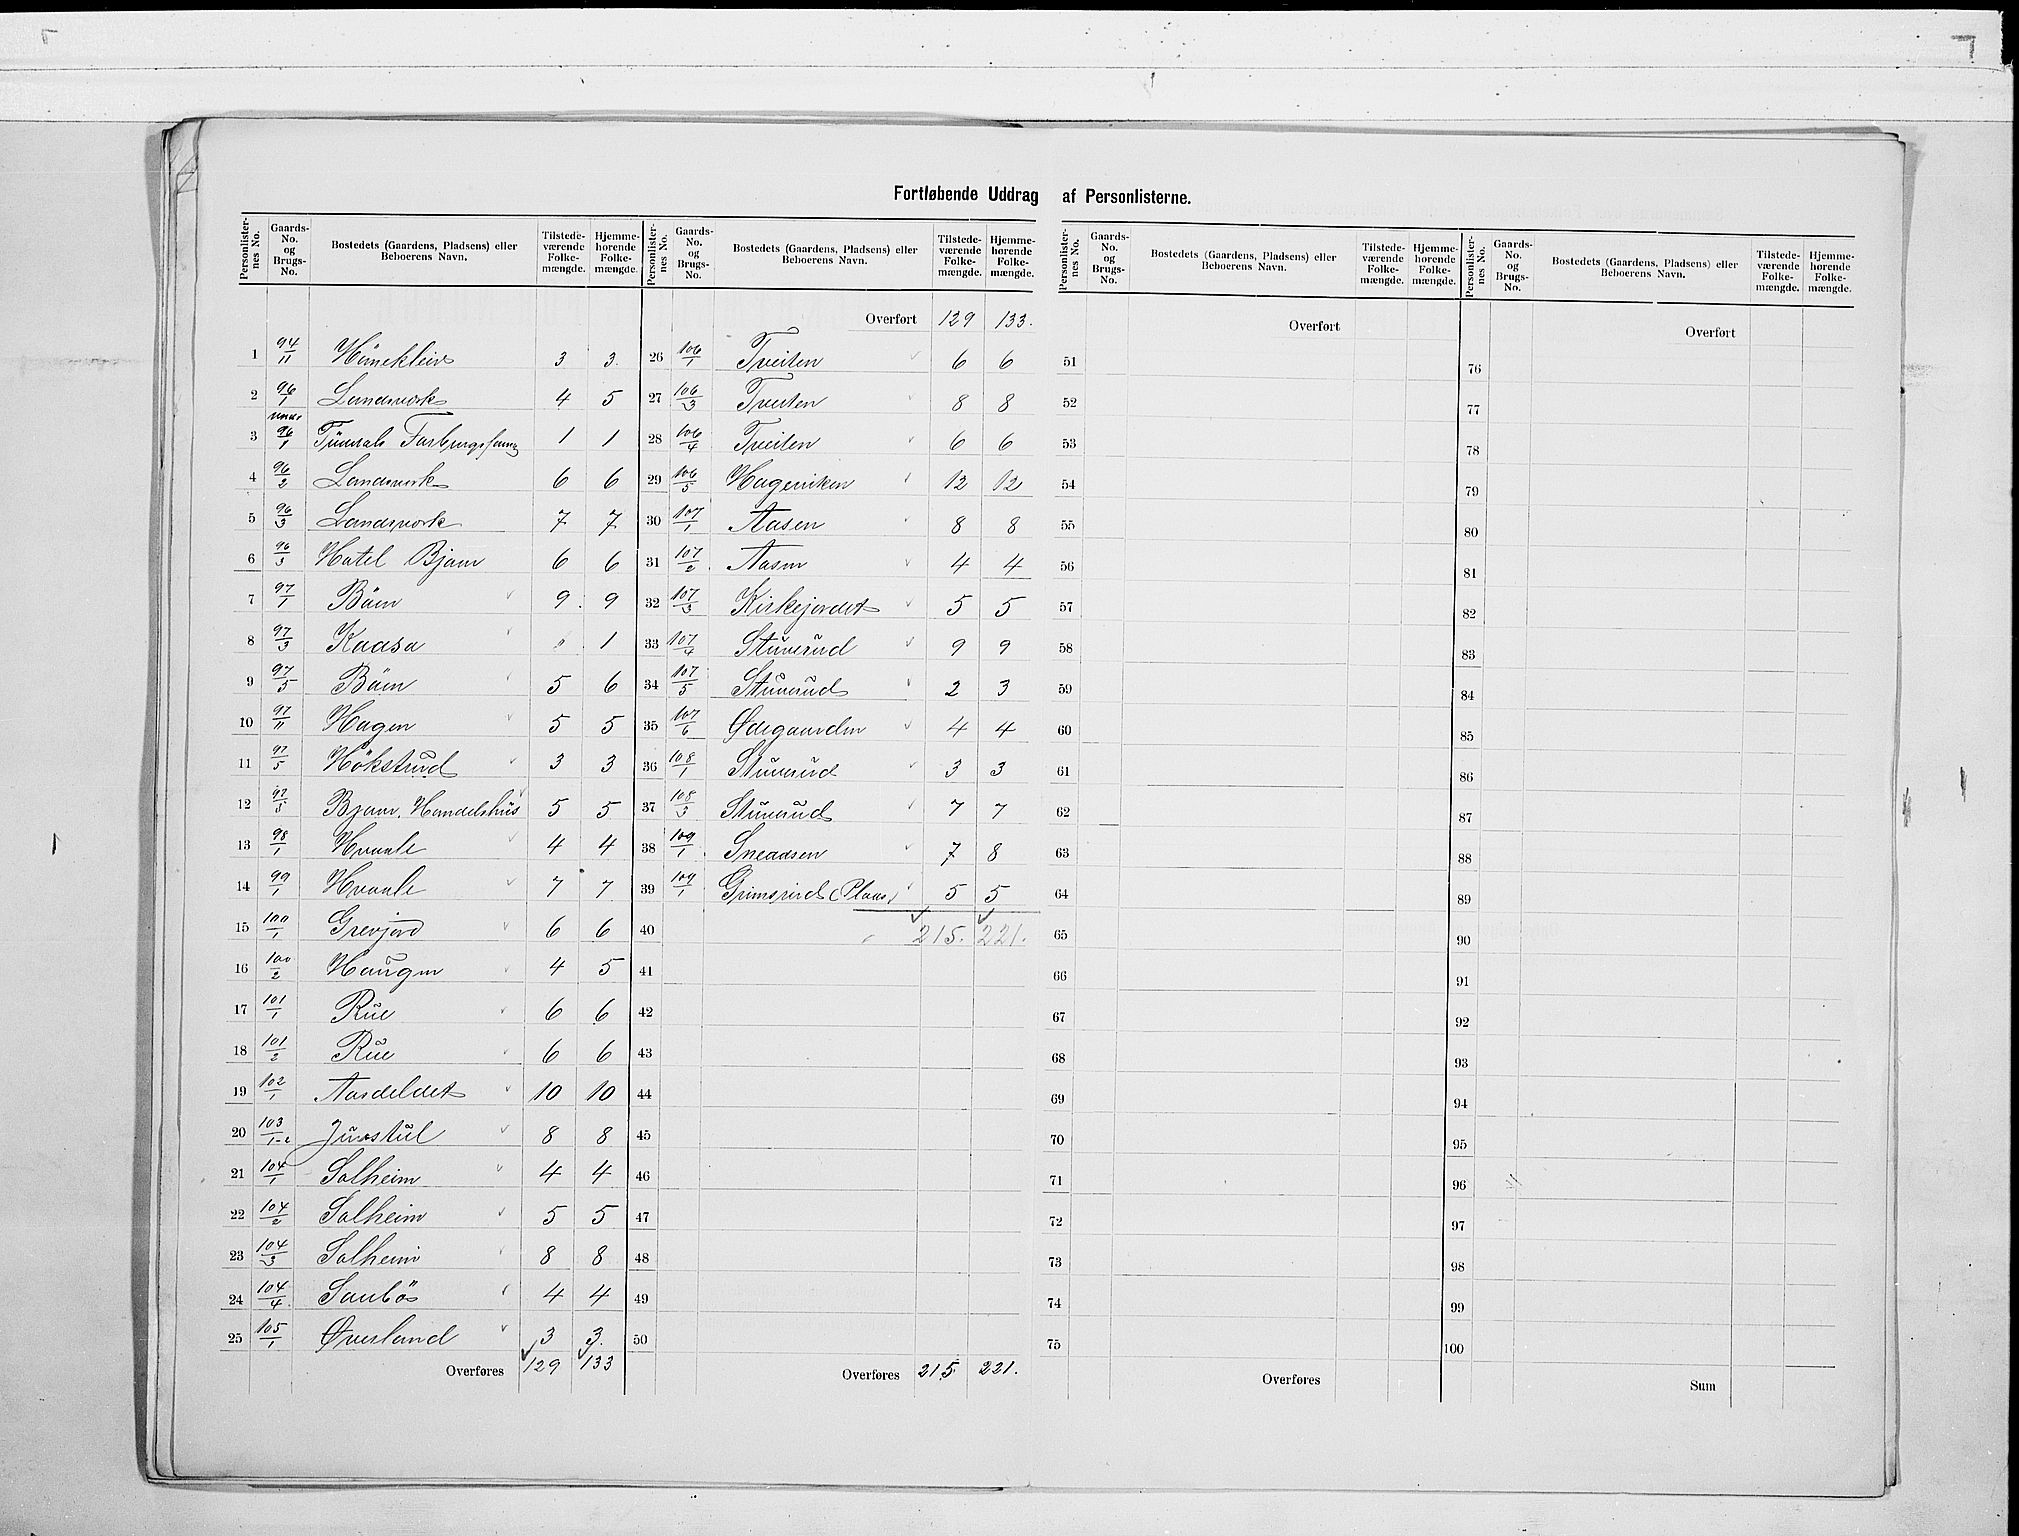 Fortløbende Uddrag af Personlisterne.
Personlister-nes No. Gaards-No. og Brugs-No. Bostedets (Gaardens, Pladsens) eller Beboerens Navn. Tilstede-værende Folke-mængde. Hjemme-hørende Folke-mængde. Personlister-nes No. Gaards-No. og Brugs-No. Bostedets (Gaardens, Pladsens) eller Beboerens Navn. Tilstede-værende Folke-mængde. Hjemme-hørende Folke-mængde. Personlister-nes No. Gaards-No. og Brugs-No. Bostedets (Gaardens, Pladsens) eller Beboerens Navn. Tilstede-værende Folke-mængde. Hjemme-hørende Folke-mængde. Personlister-nes No. Gaards-No. og Brugs-No. Bostedets (Gaardens, Pladsens) eller Beboerens Navn. Tilstede-værende Folke-mængde. Hjemme-hørende Folke-mængde.
Overført 129 133. Overført Overført
1 94/11 3 3. 26 106/1 Tveiten 6 6 51 76
2 96/1 Landsverk 4 5 27 106/3 Tveiten 8 8 52 77
3 under 96/1 1 1 28 106/4 Tveiten 6 6 53 78
4 96/2 Landsverk 6 6 29 106/5 12 12 54 79
5 96/3 Landsverk 7 7 30 107/1 Aasen 8 8 55 80
6 96/3 Hotel Bjaen 6 6 31 107/2 Aasen 4 4 56 81
7 97/1 Böen 9 9 32 107/3 Kirkejordet 5 5 57 82
8 97/3 Kaasa " 1 33 107/4 Stuverud 9 9 58 83
9 97/5 Böen 5 6 34 107/5 Stuverud 2 3 59 84
10 97/11 Hagen 5 5 35 107/6 Ødegaarden 4 4 60 85
11 97/5 Hökstrud 3 3 36 108/1 Stuverud 3 3 61 86
12 97/5 Handelshus 5 5 37 108/3 Stuverud 7 7 62 87
13 98/1 Hvaale 4 4 38 109/1 Sneaasen 7 8 63 88
14 99/1 Hvaale 7 7 39 109/1 Grimsrud (Plads) 5 5 64 89
15 100/1 Grevjord 6 6 40 215. 221. 65 90
16 100/2 Haugen 4 5 41 66 91
17 101/1 Rue 6 6 42 67 92
18 101/2 Rue 6 6 43 68 93
19 102/1 10 10 44 69 94
20 103/1-2 Juvstul 8 8 45 70 95
21 104/1 Solheim 4 4 46 71 96
22 104/2 Solheim 5 5 47 72 97
23 104/3 Solheim 8 8 48 73 98
24 104/4 Saubös 4 4 49 74 99
25 105/1 Øverland 3 3. 50 75 100
Overføres 129 133 Overføres 215 221. Overføres Sum